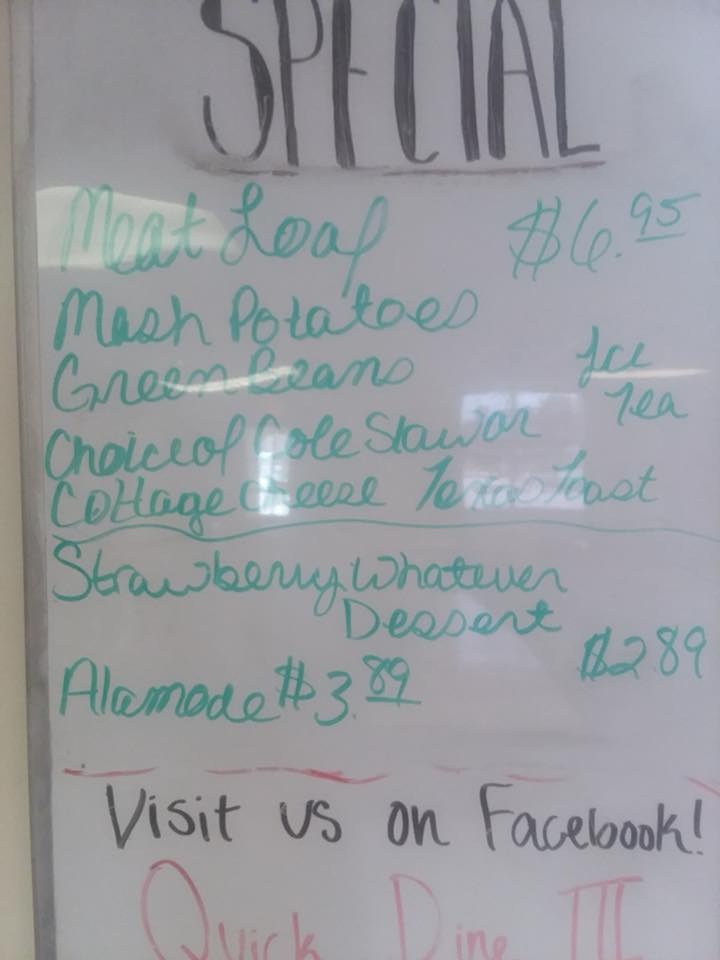 SPECIAL
Meat Loaf $6.95
Mash Potatoes
Green Beans Ice
Tea
Choice of Cole Slaw or
Cottage Cheese Texas Toast
Strawberry Whatever
Dessert
$2.89
Alamode $3.89
Visit us on Facebook!
Quick Dine III